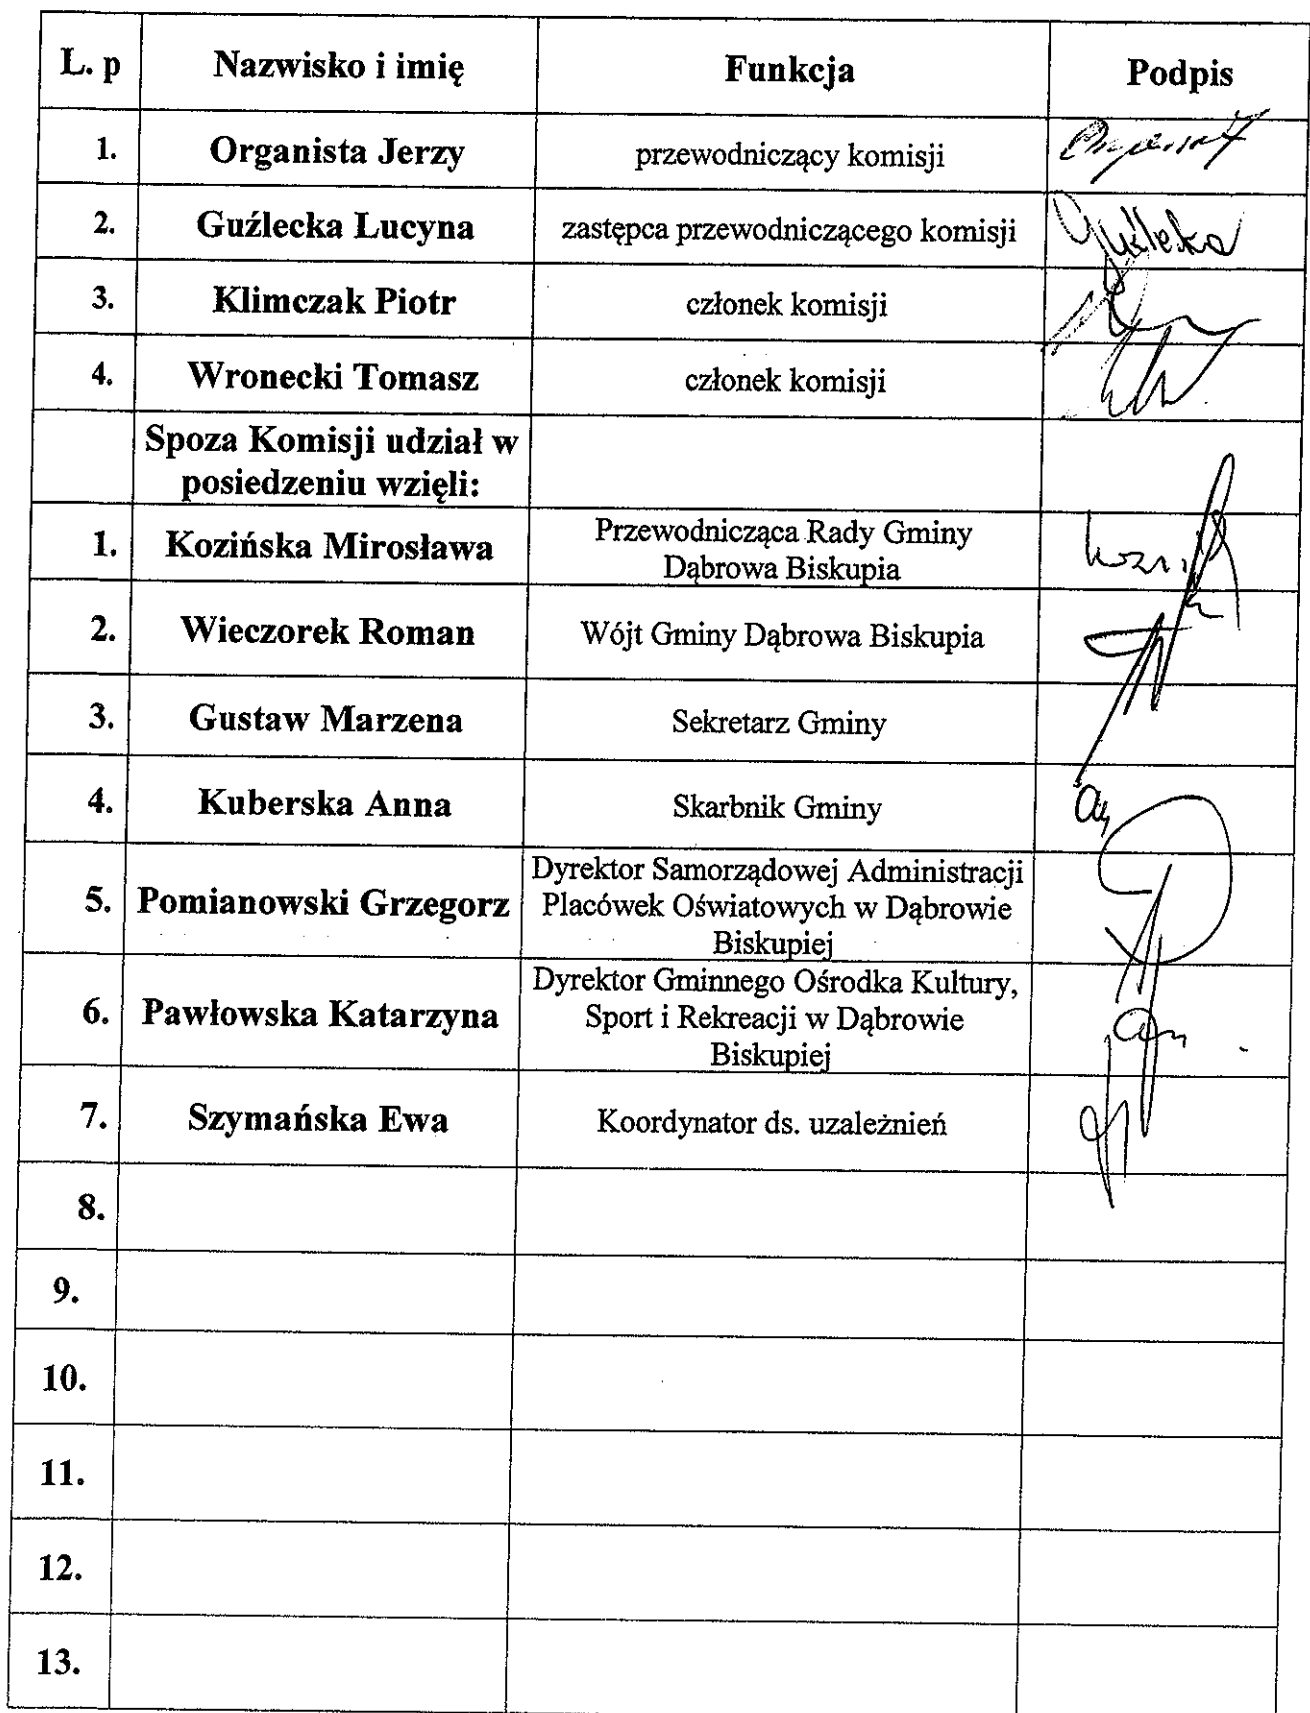 L. p Nazwisko i imię Funkcja Podpis
1. Organista Jerzy przewodniczący komisji
2. Guźlecka Lucyna zastępca przewodniczącego komisji
3. Klimczak Piotr członek komisji
4. Wronecki Tomasz członek komisji
Spoza Komisji udział w
posiedzeniu wzięli:
1. Kozińska Mirosława Przewodnicząca Rady Gminy
Dąbrowa Biskupia
2. Wieczorek Roman Wójt Gminy Dąbrowa Biskupia
3. Gustaw Marzena Sekretarz Gminy
4. Kuberska Anna Skarbnik Gminy
Dyrektor Samorządowej Administracji
5. Pomianowski Grzegorz Placówek Oświatowych w Dąbrowie
Biskupiej
Dyrektor Gminnego Ośrodka Kultury,
6. Pawłowska Katarzyna Sport i Rekreacji w Dąbrowie
Biskupiej
7. Szymańska Ewa Koordynator ds. uzależnień
8.
9.
10.
11.
12.
13.